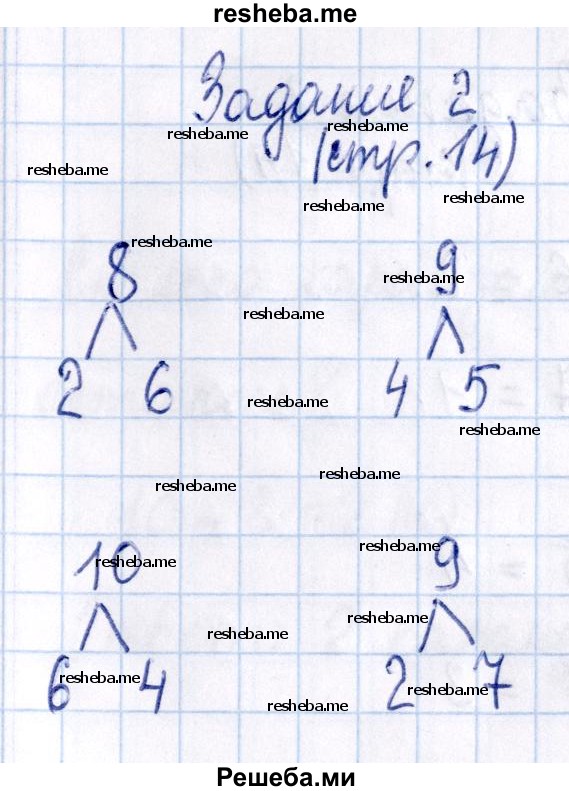 resheba.me
Задание 2
resheba.me resheba.me
(стр. 14)
resheba.me
resheba.me resheba.me
resheba.me
8 9
resheba.me
resheba.me
2 6 4 5
resheba.me
resheba.me
resheba.me
resheba.me
resheba.me
10 9
resheba.me
resheba.me
resheba.me
6 4 2 7
resheba.me resheba.me
resheba.me
Решеба.ми